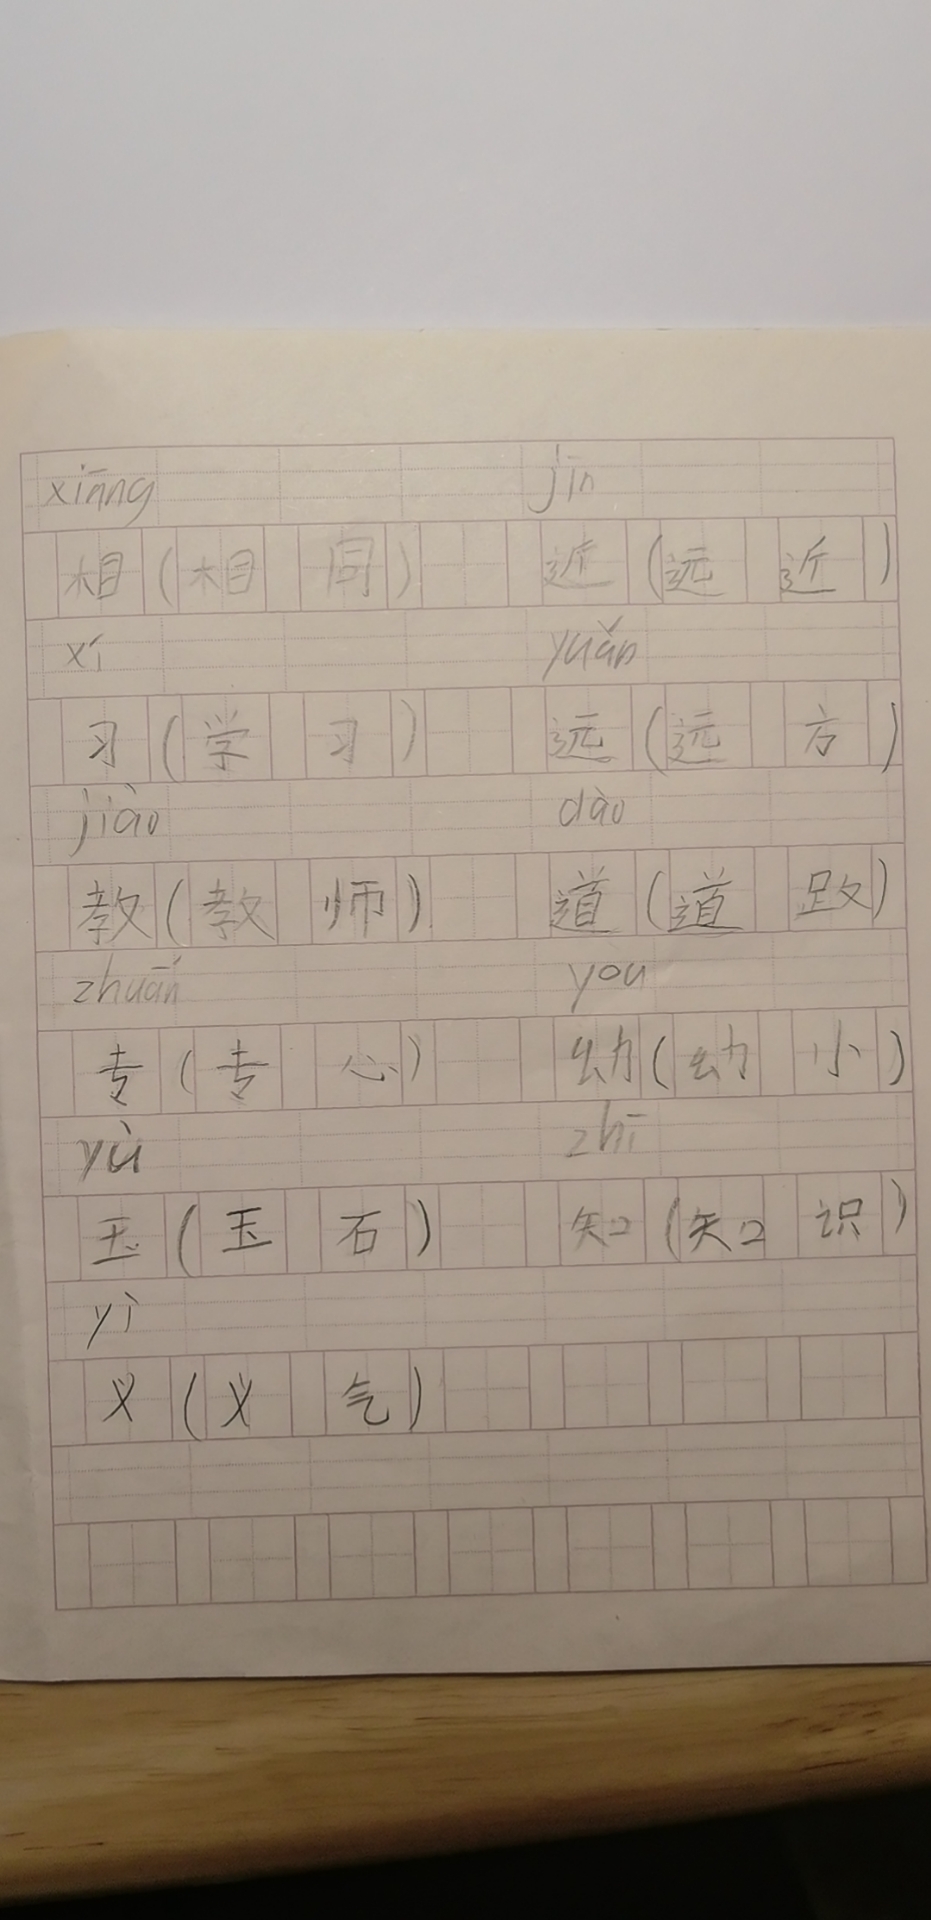 xiāng jīn
相（相同） 近（远近）
xí yuǎn
习（学习） 远（远方）
jiào dào
教（教师） 道（道路）
zhuān you
专（专心） 幼（幼小）
yù zhī
玉（玉石） 知（知识）
yì
义（义气）